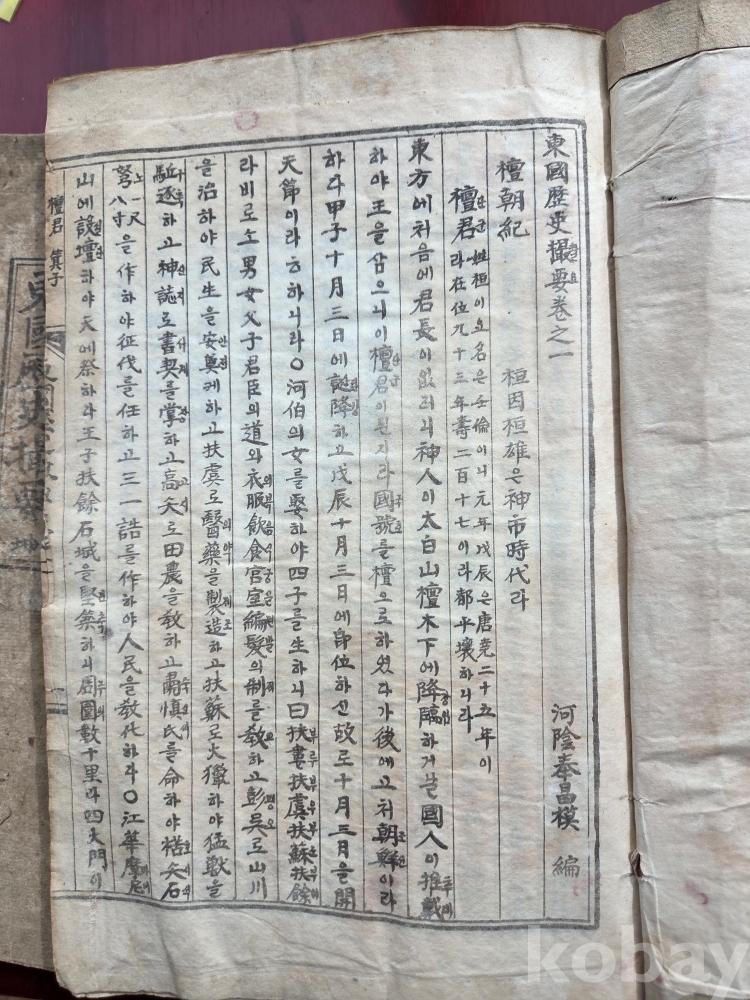 東國歷史撮要卷之一
河陰奉昌模 編
檀朝紀 桓因桓雄은神市時代라
檀君 姓桓이요名은壬倫이니元年戊辰은唐堯二十五年이
라在位九十三年壽二百十七이라都平壤하니라
東方에처음에君長이없더니神人이太白山檀木下에降臨하거날國人이推戴
하야王을삼으니이檀君이된지라國號를檀으로하였다가後에고처朝鮮이라
하다甲子十月三日에誕降하고戊辰十月三日에即位하신故로十月三日을開
天節이라하니라○河伯의女를娶하야四子를生하니曰扶婁扶虞扶蘇扶餘
라비로소男女父子君臣의道와衣服飮食宮室編髮의制를敎하고彭吳로山川
을治하야民生을安奠케하고扶虞로醫藥을製造하고扶蘇로火獵하야猛獸을
駈逐하고神誌로書契를掌하고高矢로田農을敎하고肅愼民를命하야楛矢石
弩 一尺八寸을作하야征伐를任하고三一誥를作하야人民을敎化하다○江華摩尼
山에設壇하야天에祭하다王子扶餘石城을堅築하니周圍數十里라四大門이
檀君 箕子
東國歷史撮要
kobay